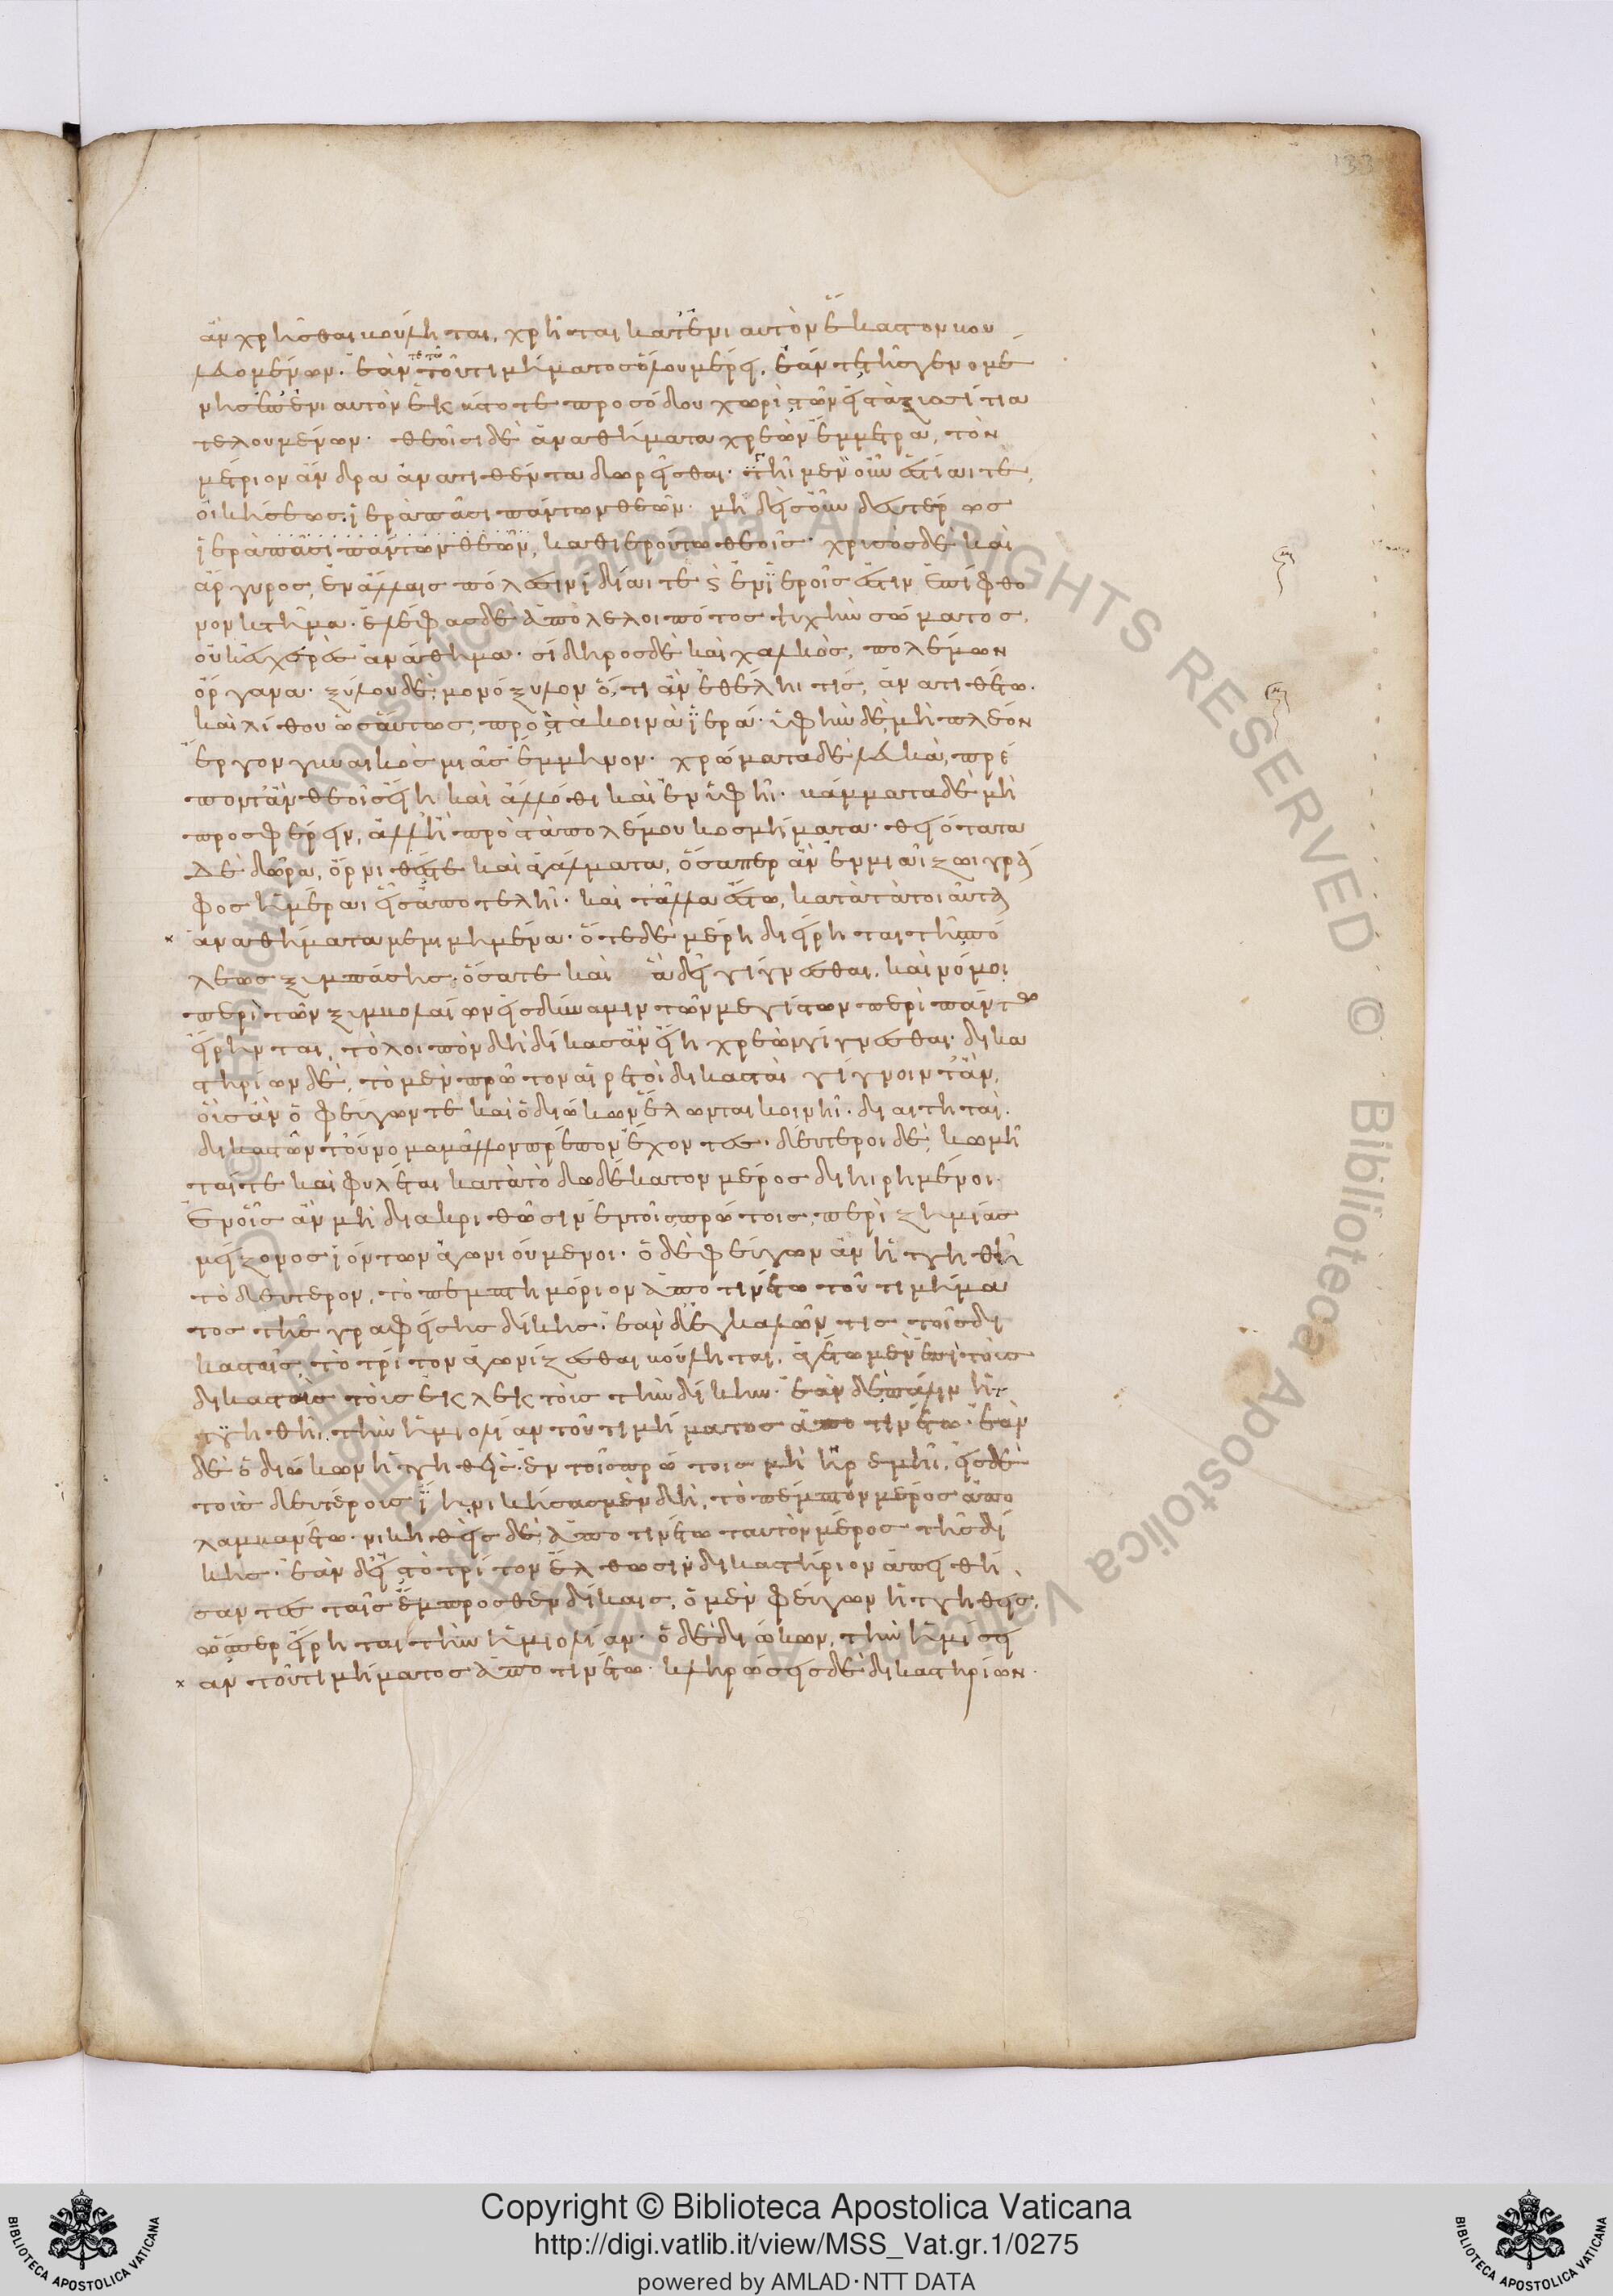 133
ἂν χρῆσθαι βούληται, χρῆται κατ' ἐνιαυτὸν ἕκαστον βου
λευομένων· ἐάν τε τοῦ τιμήματος ὅλου μέρει, ἐάν τε τῆς γενομέ
νης ἐπ' ἐνιαυτὸν ἑκάστοτε προσόδου χωρὶς τῶν εἰς τὰ ξυσσίτια
τελουμένων· θεοῖσι δὲ ἀναθήματα χρεὼν ἔμμετρα, τὸν
μέτριον ἄνδρα ἀνατιθέντα δωρεῖσθαι· γῆ μὲν οὖν ἑστία τε
οἰκήσεως ἱερὰ πᾶσι πάντων θεῶν· μηδεὶς οὖν δευτέρως
ἱερὰ πᾶσι πάντων θεῶν, καθιερούτω θεοῖς· χρυσὸς δὲ καὶ
ἄργυρος, ἐν ἄλλαις πόλεσιν ἰδίαι τε ϗ ἐν ἱεροῖς ἐστιν ἐπίφθο
νον κτῆμα· ἐλέφας δὲ ἀπολελοιπότος ψυχὴν σώματος,
οὐκ εὐχερὲς ἀνάθημα· σίδηρος δὲ καὶ χαλκὸς, πολέμων
ὄργανα· ξύλου δὲ, μονόξυλον ὅ, τι ἂν ἐθέλῃ τις, ἀνατιθέτω·
καὶ λίθου ὡσαύτως, πρὸς τὰ κοινὰ ἱερά· ὑφὴν δὲ, μὴ πλέον
ἔργον γυναικὸς μιᾶς ἔμμηνον· χρώματα δὲ λευκὰ, πρέ
ποντ' ἂν θεοῖς εἴη καὶ ἄλλοθι καὶ ἐν ὑφῆι· βάμματα δὲ μὴ
προσφέρειν, ἀλλ' ἢ πρὸς τὰ πολέμου κοσμήματα· θειότατα
δὲ δῶρα, ὄρνιθές τε καὶ ἀγάλματα, ὅσαπερ ἂν ἐν μιᾶι ζωγρά
φος ἡμέραι εἷς ἀποτελῆι· καὶ τἄλλα ἔστω, κατὰ τὰ τοιαῦτα
ἀναθήματα μεμιμημένα· ὅτε δὲ μέρη διείρηται τῆς πό
λεως ξυμπάσης, ὅσα τε καὶ ἃ δεῖ γίγνεσθαι, καὶ νόμοι
περὶ τῶν ξυμβολαίων εἰς δύναμιν τῶν μεγίστων περὶ πάντων
εἴρηνται, τὸ λοιπὸν δὴ δίκας ἂν εἴη χρεὼν γίγνεσθαι· δικα
στηρίων δὲ, τὸ μὲν πρῶτον αἱρετοὶ δικασταὶ γίγνοιντ' ἂν,
οὓς ἂν ὁ φεύγων τε καὶ ὁ διώκων ἕλωνται κοινῆι· διαιτηταὶ
δικαστῶν τοὔνομα μᾶλλον πρέπον ἔχοντες· δεύτεροι δὲ, κωμῆ
ταί τε καὶ φυλέται κατὰ τὸ δωδέκατον μέρος διηρημένοι·
ἐν οἷς ἂν μὴ διακριθῶσιν ἐν τοῖς πρώτοις, περὶ ζημίας
μείζονος ἰόντων ἀγωνιούμενοι· ὁ δὲ φεύγων ἂν ἡττηθῆι
τὸ δεύτερον, τὸ πεμπτημόριον ἀποτινέτω τοῦ τιμήμα
τος τῆς γραφείσης δίκης· ἐὰν δ' ἐγκαλῶν τις τοῖς δι
κασταῖς, τὸ τρίτον ἀγωνίζεσθαι βούληται, ἀγέτω μὲν ἐπὶ τοὺς
δικαστὰς τοὺς ἐκλεκτοὺς τὴν δίκην· ἐὰν δὲ πάλιν ἡτ
τηθῆι, τὴν ἡμιολίαν τοῦ τιμήματος ἀποτινέτω· ἐὰν
δὲ ὁ διώκων ἡττηθεὶς ἐν τοῖς πρώτοις μὴ ἠρεμῆι, εἰς δὲ
τοὺς δευτέρους ἴηι, νικήσας μὲν δὴ, τὸ πέμπτον μέρος ἀπο
λαμβανέτω· νικηθεὶς δὲ, ἀποτινέτω ταὐτὸν μέρος τῆς δί
κης· ἐὰν δ' εἰς τὸ τρίτον ἔλθωσιν δικαστήριον ἀπειθή
σαντες ταῖς ἔμπροσθεν δίκαις, ὁ μὲν φεύγων ἡττηθεὶς,
ὥσπερ εἴρηται τὴν ἡμιολίαν· ὁ δὲ διώκων, τὴν ἡμίσει
αν τοῦ τιμήματος ἀποτινέτω· κληρώσεις δὲ δικαστηρίων
Copyright © Biblioteca Apostolica Vaticana
http://digi.vatlib.it/view/MSS_Vat.gr.1/0275
powered by AMLAD·NTT DATA